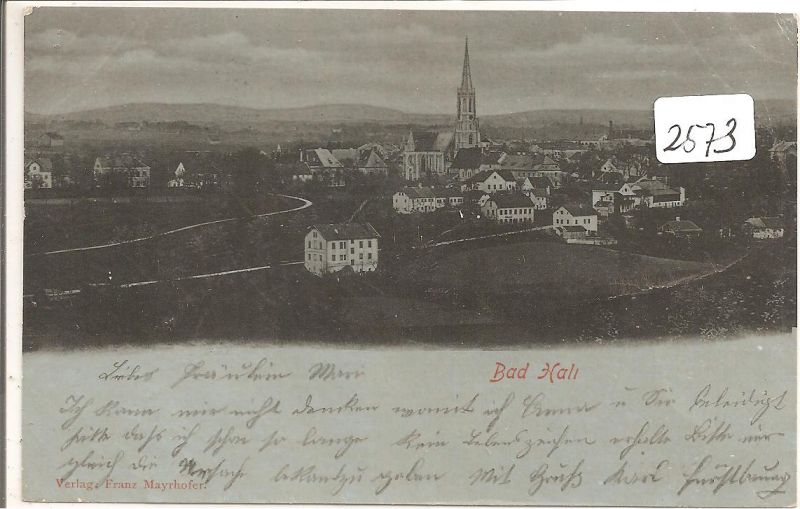 2573
Bad Hall
Liebes Fräulein Mari
Ich kann mir nicht denken womit ich Anna u Sie beleidigt
hätte dafs ich schon so lange kein Lebenszeichen erhalte Bitte mir
gleich die Ursache bekandzugeben Mit Gruß Karl
Verlag. Franz Mayrhofer.